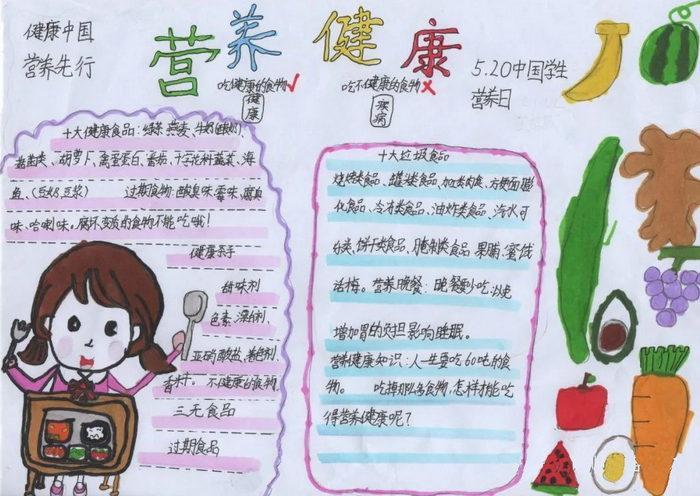 健康中国
营养先行
营养健康
吃健康的食物✓
健康
吃不健康的食物×
疾病
5.20中国学生
营养日
十大健康食品:绿茶、燕麦、牛奶(酸奶)、
菌菇类、胡萝卜、禽蛋蛋白、番茄、十字花科蔬菜、海
鱼、(豆奶豆浆) 过期食物:酸臭味、霉味、腐臭
味、哈喇味。腐坏变质的食物不能吃哦!
健康杀手
甜味剂
色素、漂白剂、
亚硝酸盐、着色剂、
香精。不健康的食物
三无食品
过期食品
十大垃圾食品
烧烤类食品、罐装类食品、加工类肉食、方便面膨
化食品、冷冻类食品、油炸类食品、汽水可
乐类、饼干类食品、腌制类食品果脯、蜜饯
话梅。营养晚餐:晚餐要少吃,以免
增加胃的负担影响睡眠。
营养健康知识:人一生要吃60吨的食
物。 吃掉那么多食物,怎样才能吃
得营养健康呢?